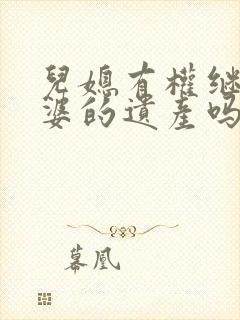 兒媳有權继
婆的遺產吗
暮凰